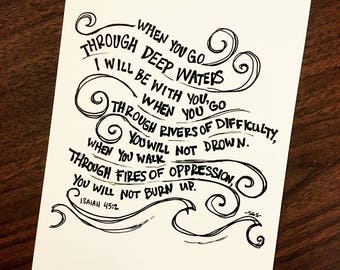 WHEN YOU GO
THROUGH DEEP WATERS
I WILL BE WITH YOU,
WHEN YOU GO
THROUGH RIVERS OF DIFFICULTY,
YOU WILL NOT DROWN.
WHEN YOU WALK
THROUGH FIRES OF OPPRESSION,
YOU WILL NOT BURN UP.
ISAIAH 43:2